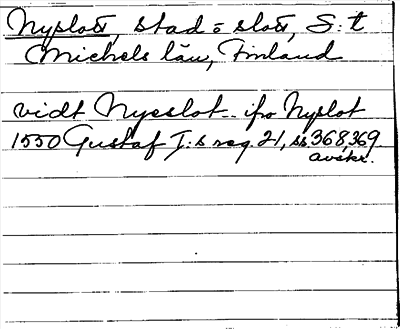 Nyslott, stad o slott, S:t
Michels län, Finland
vidt Nyeslot ifrå Nyslot
1550 Gustaf I:s reg. 21, ss 368,369.
avskr.